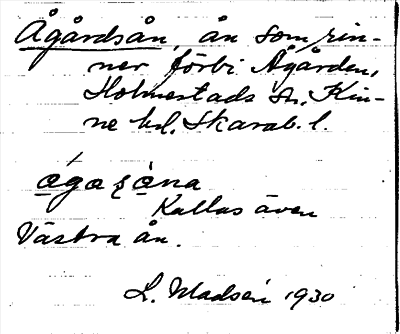 Ågårdsån, ån som rin-
ner förbi Ågården,
Holmestads sn, Kin-
ne hd, Skarab. l.
Kallas även
Västra ån.
L. Madsén 1930